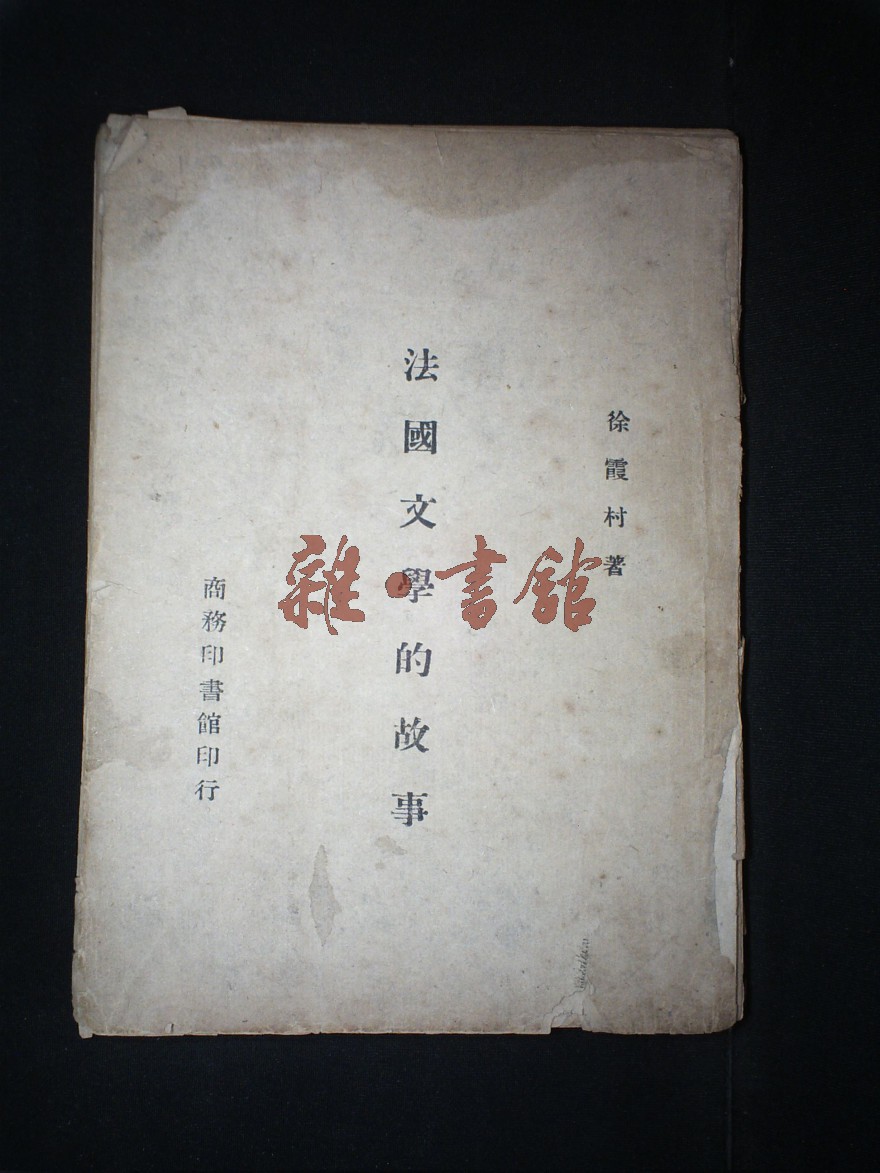 徐霞村著
法國文學的故事
商務印書館印行
雜·書館